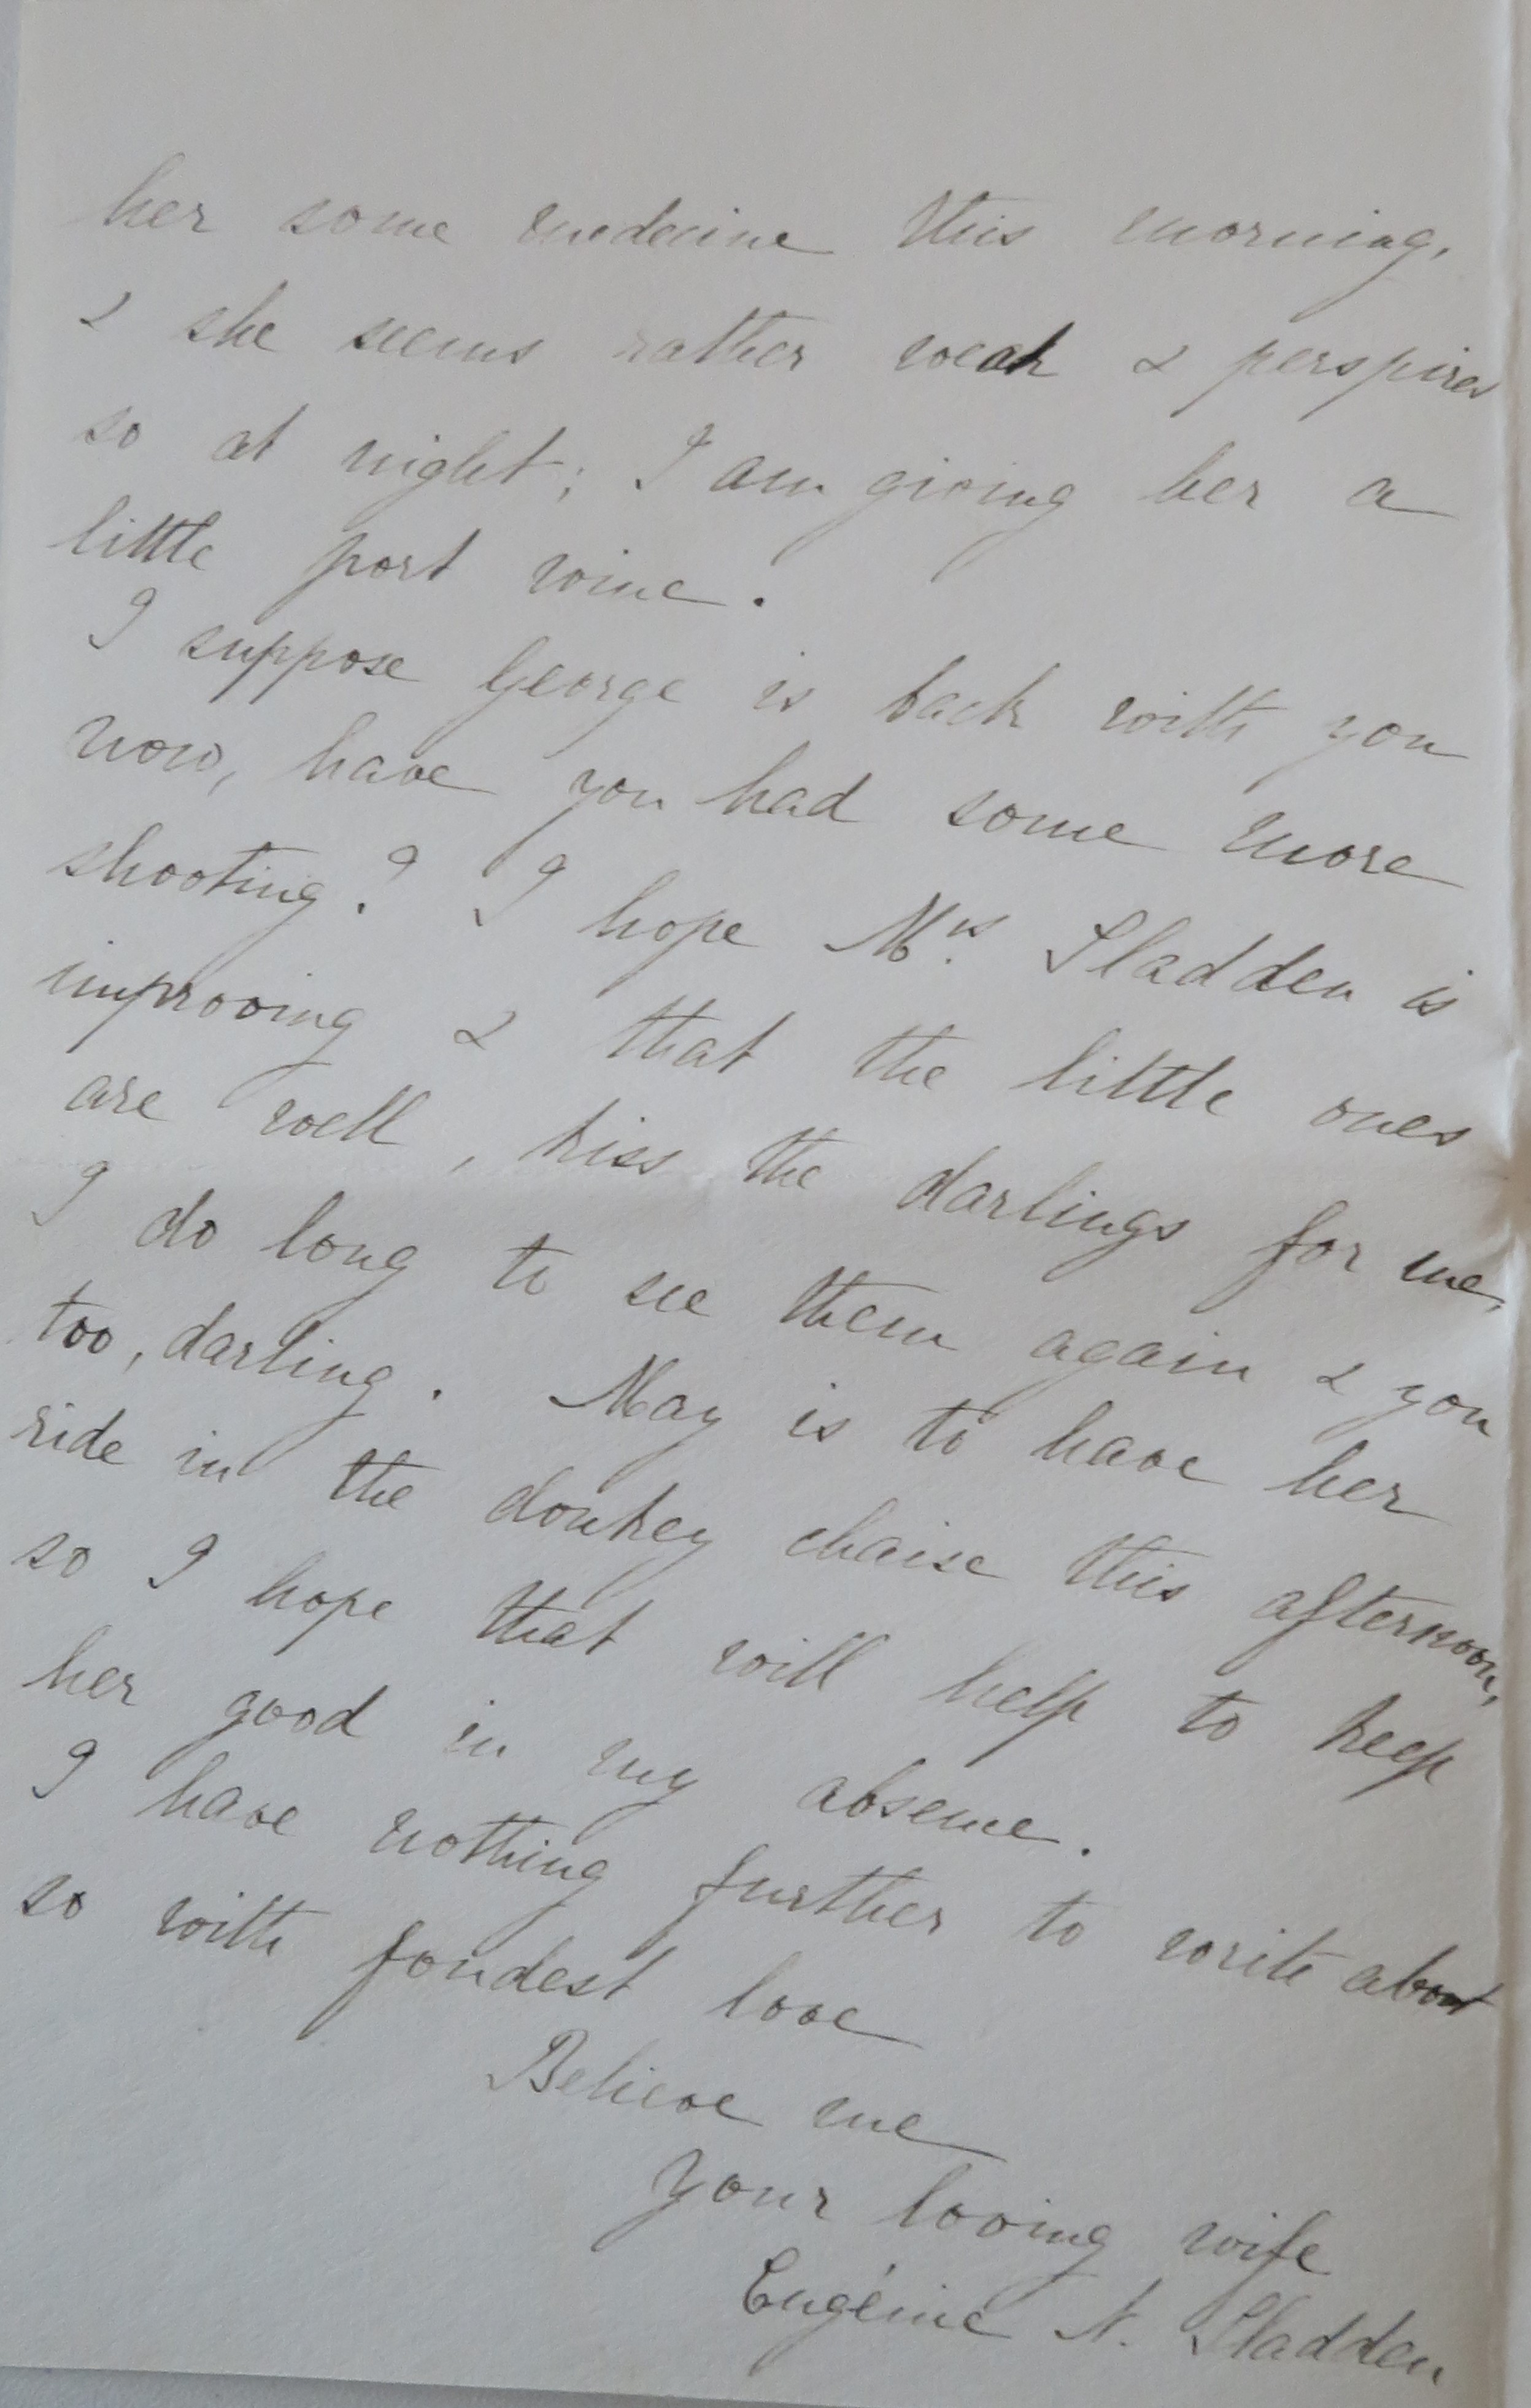 her some medecine this morning,
& she seems rather weak & perspires
so at night; I am giving her a
little port wine.
I suppose George is back with you
now, have you had some more
shooting? I hope Mrs. Sladden is
improving & that the little ones
are well, kiss the darlings for me,
I do long to see them again & you
too, darling. May is to have her
ride in the donkey chaise this afternoon,
so I hope that will help to keep
her good in my absence.
I have nothing further to write about
so with fondest love
Believe me
Your loving wife
Eugénie N. Sladden